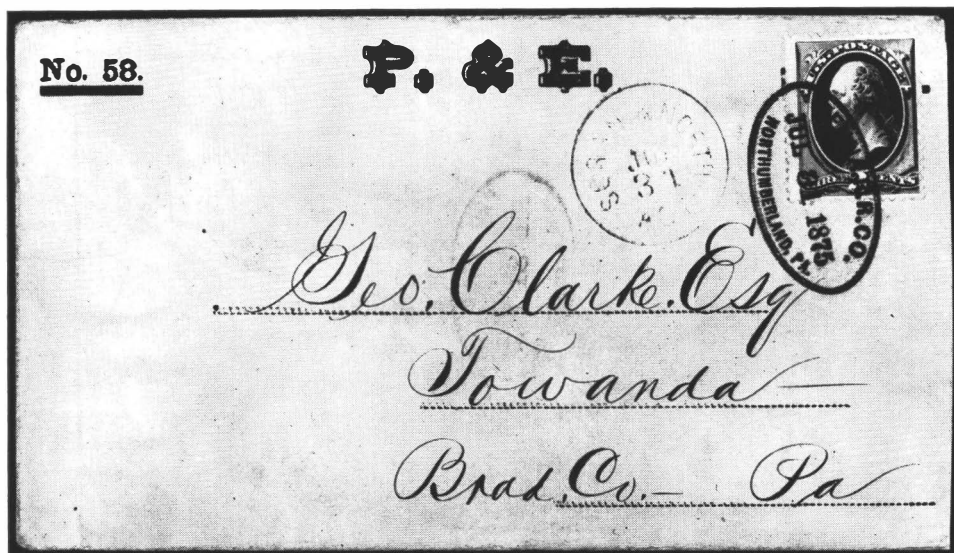 No. 58.
P. & E.
U.S. POSTAGE
R.R.CO.
JUL 31 1875
NORTHUMBERLAND, PA.
31
Geo. Clarke. Esq
Towanda —
Brad. Co. — Pa